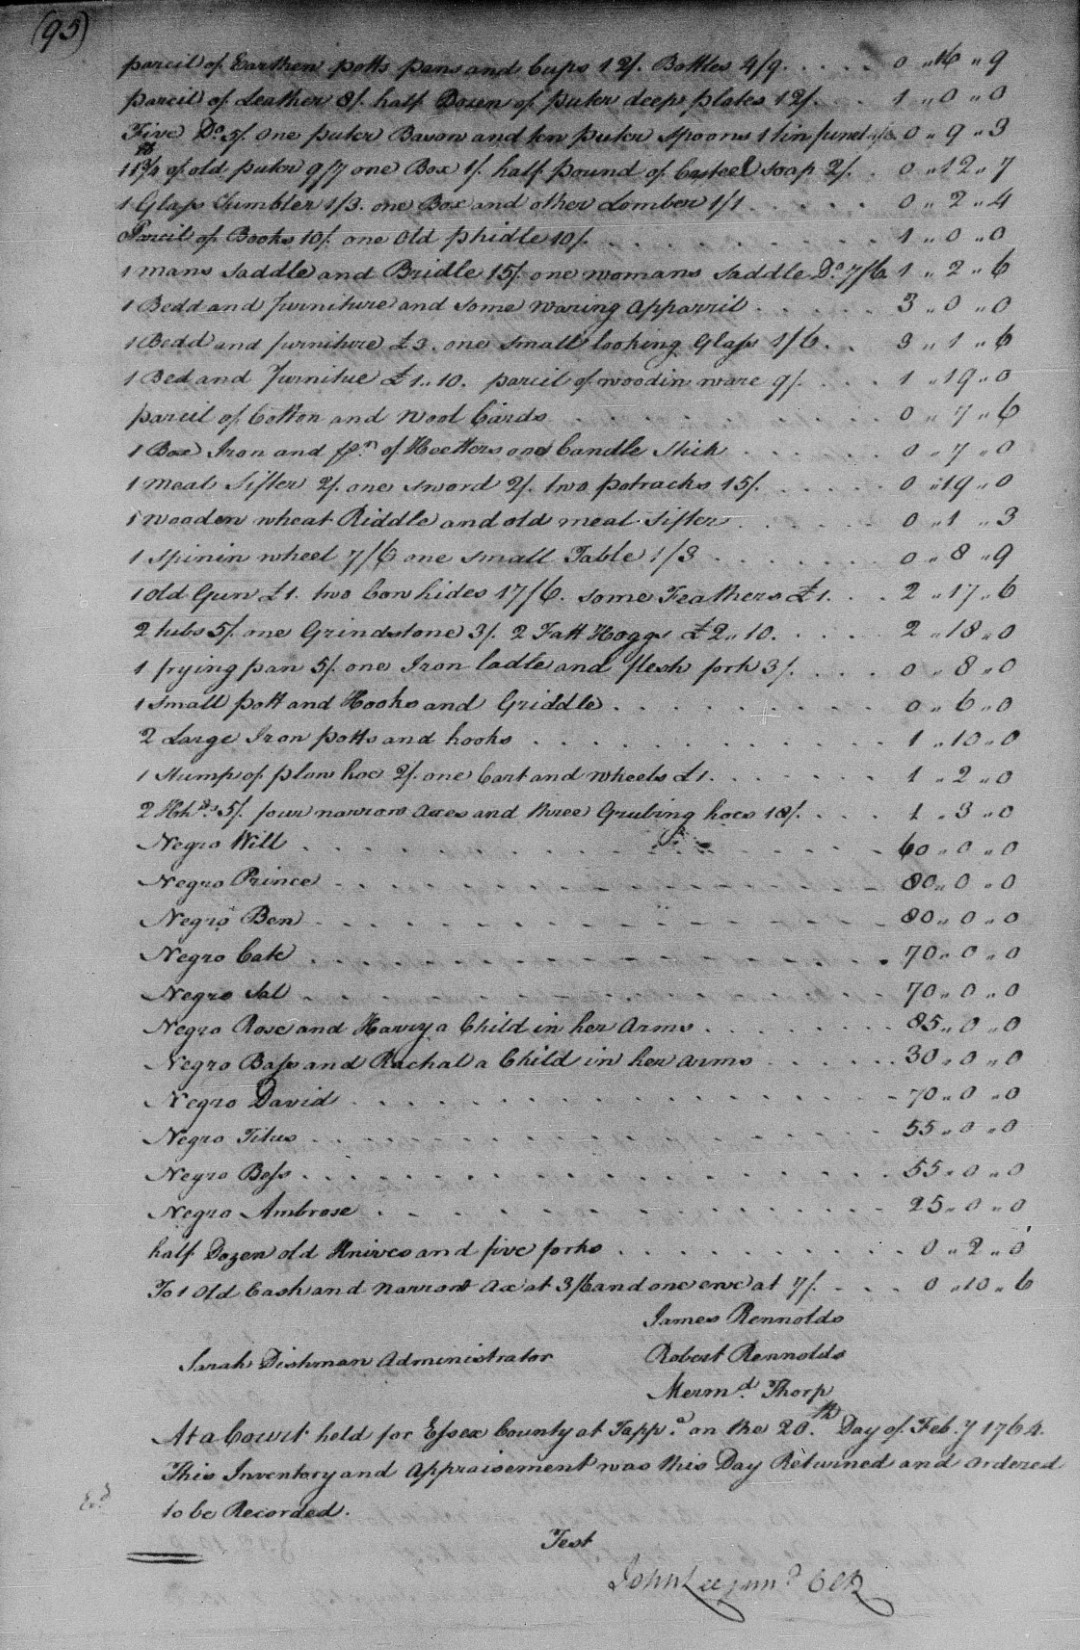 (95)
parcil of Earthen potts pans and Cups 12/. Bottles 4/9. 0 " 16 " 9
parcil of Leather 8/. half Dozen of puter deep plates 12/. 1 " 0 " 0
Five Do. 5/. one puter Bason and ten puter Spoons 1 tin funel 0 " 9 " 3
11 3/4 lb of old puter 9/7 one Box 1/. half pound of Casteel soap 2/. 0 " 12 " 7
1 Glass Tumbler 1/3. one Box and other Lomber 1/1 0 " 2 " 4
Parcil of Books 10/. one Old phidle 10/. 1 " 0 " 0
1 mans saddle and Bridle 15/. one womans saddle Do. 7/6 1 " 2 " 6
1 Bedd and furniture and some waring apparril 3 " 0 " 0
1 Bedd and furniture £3. one small looking Glass 1/6. 3 " 1 " 6
1 Bed and Furnitue £1..10. parcil of woodin ware 9/. 1 " 19 " 0
parcil of Cotton and wool Cards 0 " 7 " 6
1 Box Iron and pr. of Heetters one Candle Stick 0 " 7 " 0
1 meal Sifter 2/. one sword 2/. two potracks 15/. 0 " 19 " 0
1 wooden wheat Riddle and old meal Sifter 0 " 1 " 3
1 spinin wheel 7/6 one small Table 1/3 0 " 8 " 9
1 old Gun £1. two Cow hides 17/6. some Feathers £1. 2 " 17 " 6
2 tubs 5/. one Grindstone 3/. 2 Fatt Hoggs £2 " 10. 2 " 18 " 0
1 frying pan 5/. one Iron ladle and flesh fork 3/. 0 " 8 " 0
1 small pott and Hooks and Griddle 0 " 6 " 0
2 Large Iron potts and hooks 1 " 10 " 0
1 Stump of plow hoe 2/. one Cart and wheels £1. 1 " 2 " 0
2 Hhds. 5/. four narrow axes and three Grubing hoes 18/. 1 " 3 " 0
Negro Will 60 " 0 " 0
Negro Prince 80 " 0 " 0
Negro Ben 80 " 0 " 0
Negro Cate 70 " 0 " 0
Negro Sal 70 " 0 " 0
Negro Rose and Harry a Child in her Arms 85 " 0 " 0
Negro Bass and Rachal a Child in her arms 30 " 0 " 0
Negro David 70 " 0 " 0
Negro Titus 55 " 0 " 0
Negro Bess 55 " 0 " 0
Negro Ambrose 25 " 0 " 0
half Dozen old Knives and five forks 0 " 2 " 0
To 1 Old Cash and narrow ax at 3/6 and one ewe at 7/. 0 " 10 " 6
James Rennolds
Sarah Dishman Administrator Robert Rennolds
Mermd. Thorp
At a Court held for Essex County at Tappa. on the 20th. Day of Feb.y 1764.
This Inventory and Appraisement was this Day Returned and ordered
to be Recorded.
Test
John Lee junr. Clk